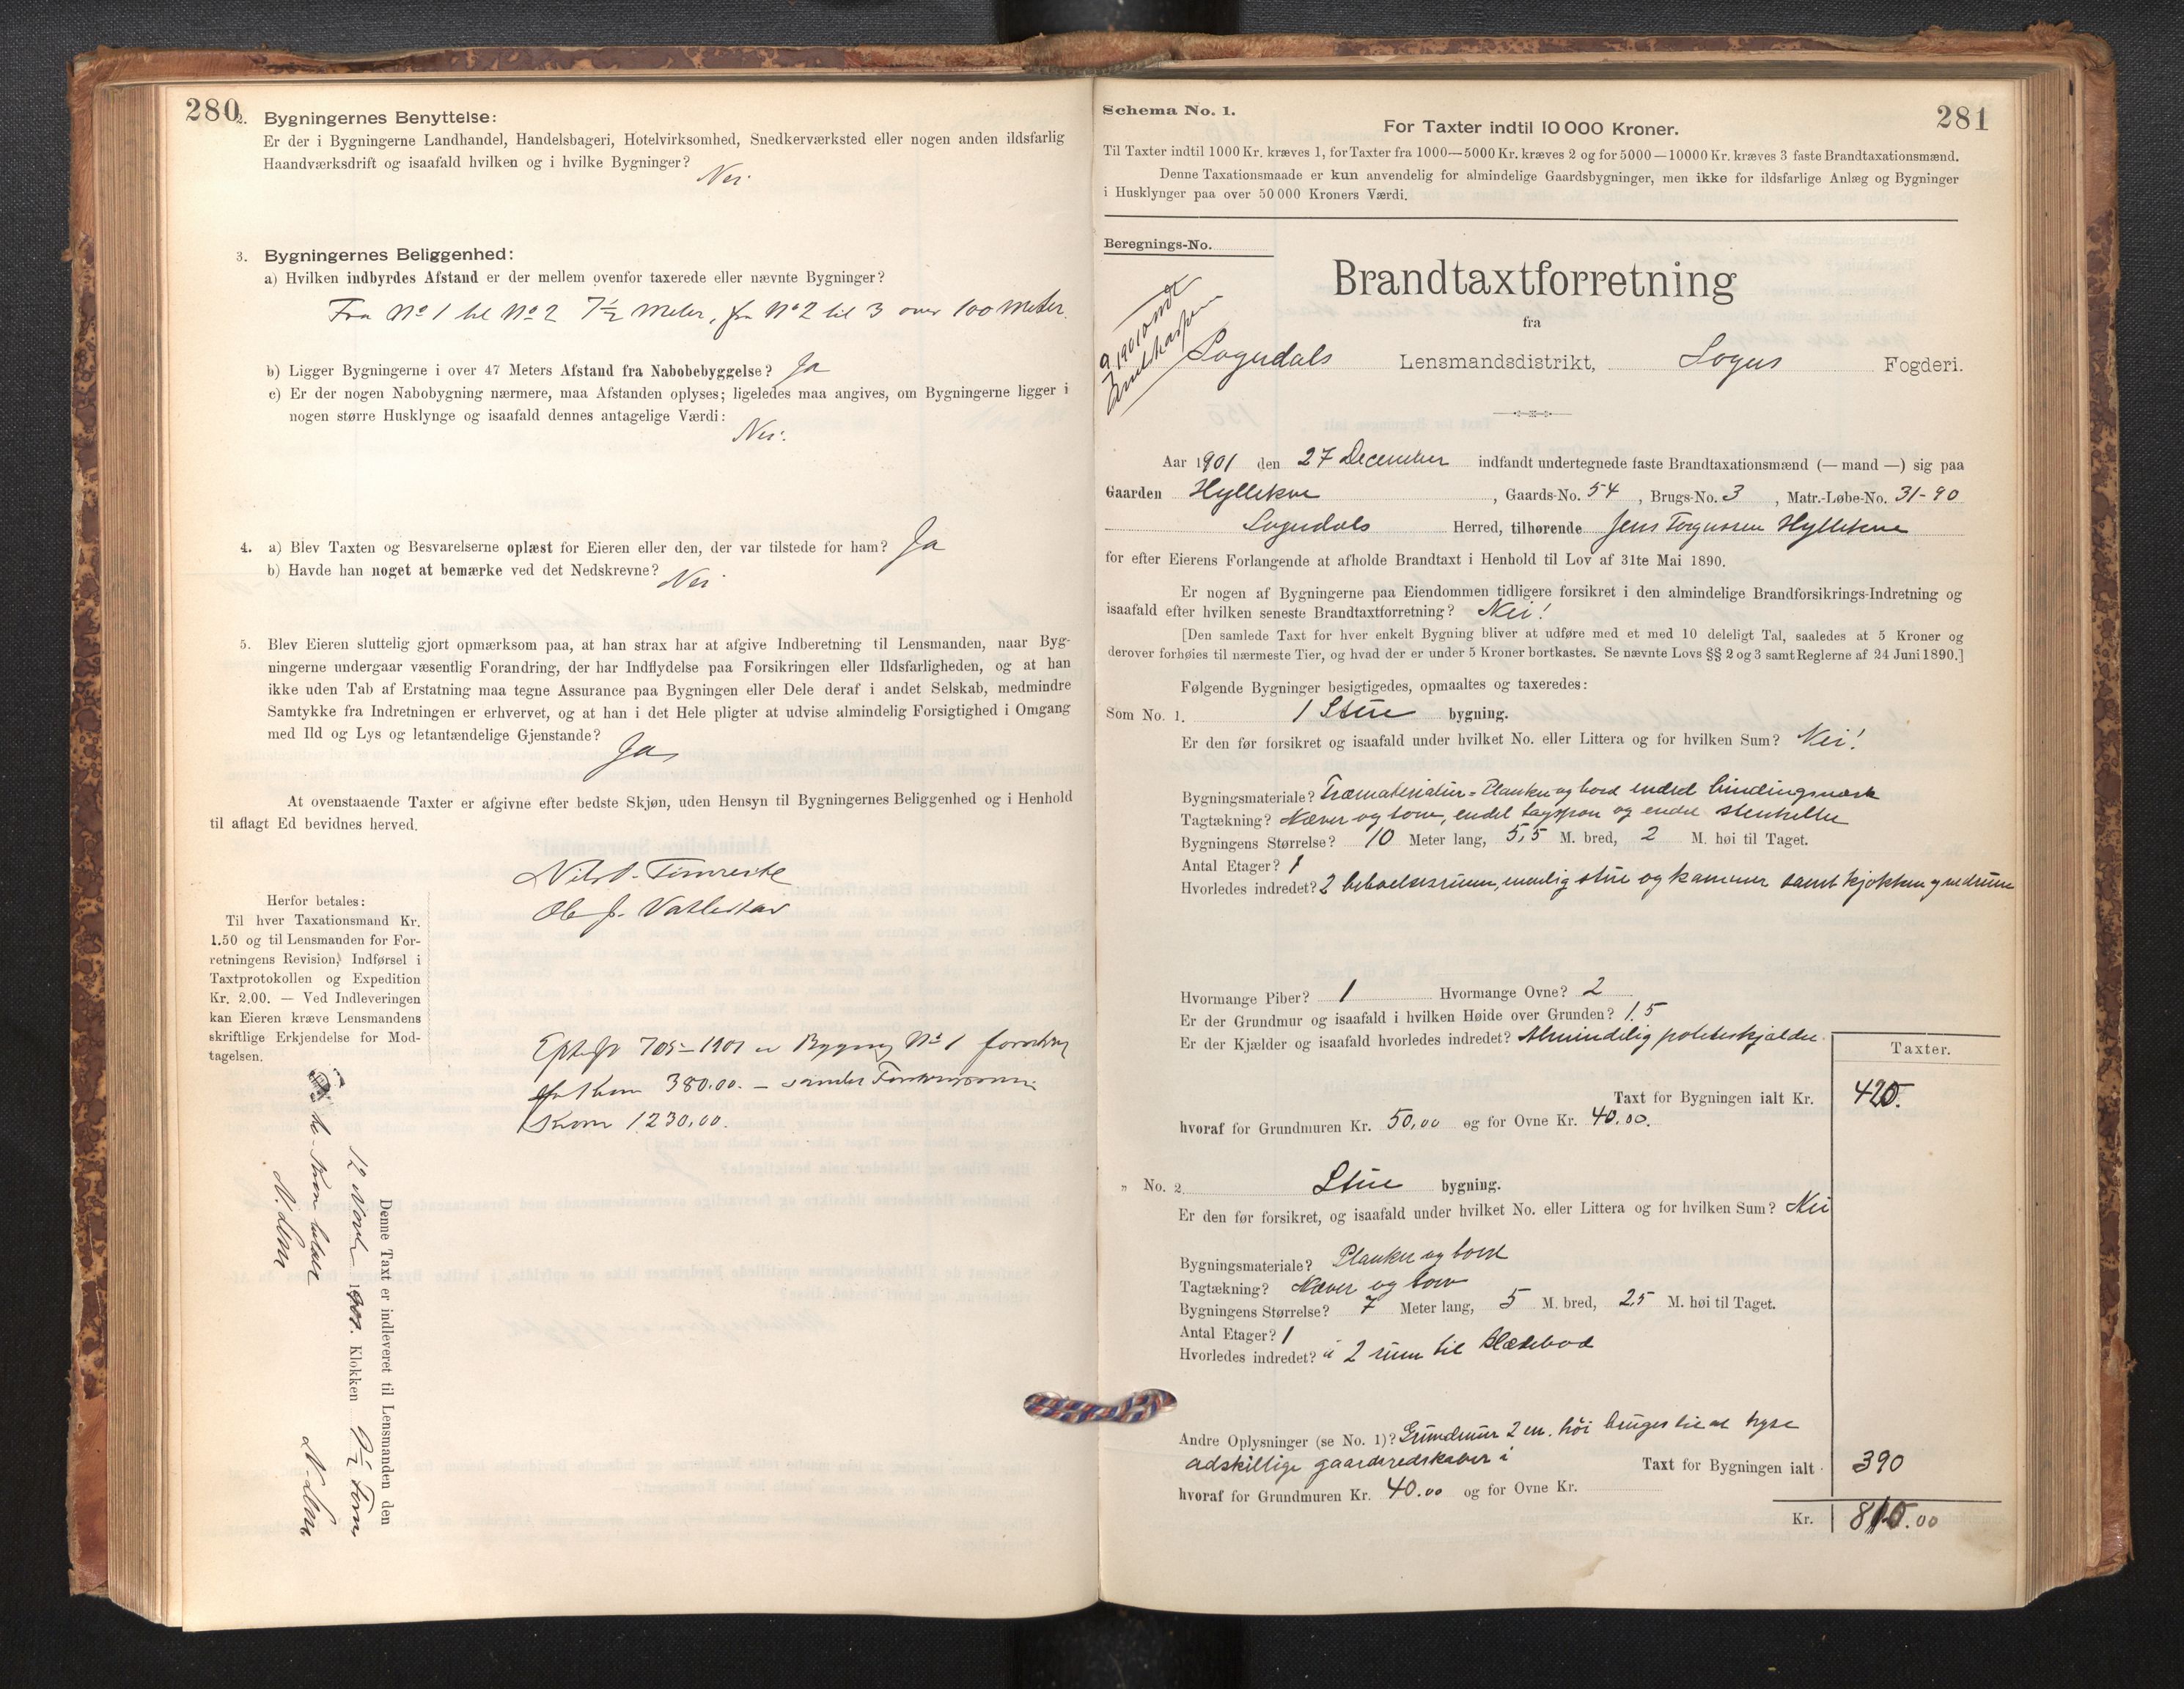 280
2. Bygningernes Benyttelse:
Er der i Bygningerne Landhandel, Handelsbageri, Hotelvirksomhed, Snedkerværksted eller nogen anden ildsfarlig
Haandværksdrift og isaafald hvilken og i hvilke Bygninger?
Nei
3. Bygningernes Beliggenhed:
a) Hvilken indbyrdes Afstand er der mellem ovenfor taxerede eller nævnte Bygninger?
Fra No 1 til No 2 7½ Meter, fra No 2 til 3 over 100 Meter.
b) Ligger Bygningerne i over 47 Meters Afstand fra Nabobebyggelse? Ja
c) Er der nogen Nabobygning nærmere, maa Afstanden oplyses; ligeledes maa angives, om Bygningerne ligger i
nogen større Husklynge og isaafald dennes antagelige Værdi:
Nei.
4. a) Blev Taxten og Besvarelserne oplæst for Eieren eller den, der var tilstede for ham? Ja
b) Havde han noget at bemærke ved det Nedskrevne? Nei
5. Blev Eieren sluttelig gjort opmærksom paa, at han strax har at afgive Indberetning til Lensmanden, naar Byg-
ningerne undergaar væsentlig Forandring, der har Indflydelse paa Forsikringen eller Ildsfarligheden, og at han
ikke uden Tab af Erstatning maa tegne Assurance paa Bygningen eller Dele deraf i andet Selskab, medmindre
Samtykke fra Indretningen er erhvervet, og at han i det Hele pligter at udvise almindelig Forsigtighed i Omgang
med Ild og Lys og letantændelige Gjenstande?
Ja
At ovenstaaende Taxter er afgivne efter bedste Skjøn, uden Hensyn til Bygningernes Beliggenhed og i Henhold
til aflagt Ed bevidnes herved.
Ole J.
Herfor betales:
Til hver Taxationsmand Kr.
1.50 og til Lensmanden for For-
retningens Revision, Indførsel i
Taxtprotokollen og Expedition
Kr. 2.00. — Ved Indleveringen
kan Eieren kræve Lensmandens
skriftlige Erkjendelse for Mod-
tagelsen.
705-1901 er Bygning No 1
380.00. –
Kroner 1230,00.
Denne Taxt er indleveret til Lensmanden den
12 1901. Klokken 9½ Form
Schema No. 1.
281
For Taxter indtil 10 000 Kroner.
Til Taxter indtil 1000 Kr. kræves 1, for Taxter fra 1000—5000 Kr. kræves 2 og for 5000—10000 Kr. kræves 3 faste Brandtaxationsmænd.
Denne Taxationsmaade er kun anvendelig for almindelige Gaardsbygninger, men ikke for ildsfarlige Anlæg og Bygninger
i Husklynger paa over 50 000 Kroners Værdi.
Beregnings-No.
Brandtaxtforretning
fra
Sogndals Lensmandsdistrikt, Sogns Fogderi.
Aar 1901 den 27 December indfandt undertegnede faste Brandtaxationsmænd (— mand —) sig paa
Gaarden Hyllekve, Gaards-No. 54, Brugs-No. 3, Matr.-Løbe-No. 31-90
Sogndals Herred, tilhørende Jens Torgussen Hyllekve
for efter Eierens Forlangende at afholde Brandtaxt i Henhold til Lov af 31te Mai 1890.
Er nogen af Bygningerne paa Eiendommen tidligere forsikret i den almindelige Brandforsikrings-Indretning og
isaafald efter hvilken seneste Brandtaxtforretning? Nei!
[Den samlede Taxt for hver enkelt Bygning bliver at udføre med et med 10 deleligt Tal, saaledes at 5 Kroner og
derover forhøies til nærmeste Tier, og hvad der er under 5 Kroner bortkastes. Se nævnte Lovs §§ 2 og 3 samt Reglerne af 24 Juni 1890.]
Følgende Bygninger besigtigedes, opmaaltes og taxeredes:
Som No. 1. 1 Stue bygning.
Er den før forsikret og isaafald under hvilket No. eller Littera og for hvilken Sum? Nei!
Bygningsmateriale? Træmaterialier = Planker og bord endel bindingsverk
Tagtækning? Næver og torv, endel tagspon og endel stenheller
Bygningens Størrelse? 10 Meter lang, 5,5 M. bred, 2 M. høi til Taget.
Antal Etager? 1
Hvorledes indredet? 2 beboelsesrum, nemlig stue og kammer samt kjøkken
Hvormange Piber? 1 Hvormange Ovne? 2
Er der Grundmur og isaafald i hvilken Høide over Grunden? 1.5
Er der Kjælder og isaafald hvorledes indredet? Almindelig poteteskjælder.
Taxter.
Taxt for Bygningen ialt Kr. 420.
hvoraf for Grundmuren Kr. 50,00 og for Ovne Kr. 40.00.
" No. 2. Stue bygning.
Er den før forsikret, og isaafald under hvilket No. eller Littera og for hvilken Sum? Nei
Bygningsmateriale? Planker og bord
Tagtækning? Næver og torv
Bygningens Størrelse? 7 Meter lang, 5 M. bred, 2,5 M. høi til Taget.
Antal Etager? 1
Hvorledes indredet? i 2 rum til klædebod
Andre Oplysninger (se No. 1)? Grundmur 2 m. høi bruges til at hyse
adskillige gaardsredskaber i Taxt for Bygningen ialt 390
hvoraf for Grundmuren Kr. 40.00 og for Ovne Kr.
Kr. 810.00